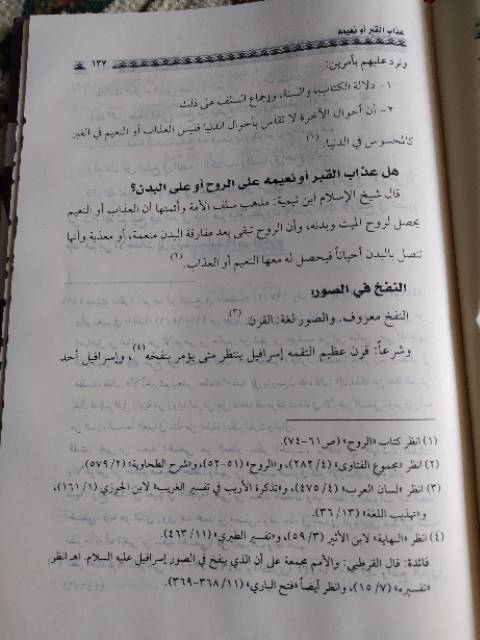 عذاب القبر أو نعيمه
١٣٧
ونرد عليهم بأمرين:
١- دلالة الكتاب، والسنة، وإجماع السلف على ذلك.
٢- أن أحوال الآخرة لا تقاس بأحوال الدنيا فليس العذاب أو النعيم في القبر
كالمحسوس في الدنيا.(١)
هل عذاب القبر أو نعيمه على الروح أو على البدن؟
قال شيخ الإسلام ابن تيمية: مذهب سلف الأمة وأئمتها أن العذاب أو النعيم
يحصل لروح الميت وبدنه، وأن الروح تبقى بعد مفارقة البدن منعمة، أو معذبة وأنها
تتصل بالبدن أحياناً فيحصل له معها النعيم أو العذاب.(٢)
النفخ في الصور:
النفخ معروف. والصور لغة: القرن.(٣)
وشرعاً: قرن عظيم التقمه إسرافيل ينتظر متى يؤمر بنفخه(٤)، وإسرافيل أحد
(١) انظر كتاب «الروح» (ص٦١-٧٤).
(٢) انظر «مجموع الفتاوى» (٤/ ٢٨٢)، و«الروح» (٥١-٥٢)، و«شرح الطحاوية» (٢/ ٥٧٩).
(٣) انظر «لسان العرب» (٤/ ٤٧٥)، و«تذكرة الأريب في تفسير الغريب» لابن الجوزي (١/ ١٦١)،
و«تهذيب اللغة» (١٣/ ٣٦).
(٤) انظر «النهاية» لابن الأثير (٣/ ٥٩)، و«تفسير الطبري» (١١/ ٤٦٣).
فائدة: قال القرطبي: والأمم مجمعة على أن الذي ينفخ في الصور إسرافيل عليه السلام. اهـ انظر
«تفسيره» (٧/ ١٥)، وانظر أيضاً «فتح الباري» (١١/ ٣٦٨-٣٦٩).